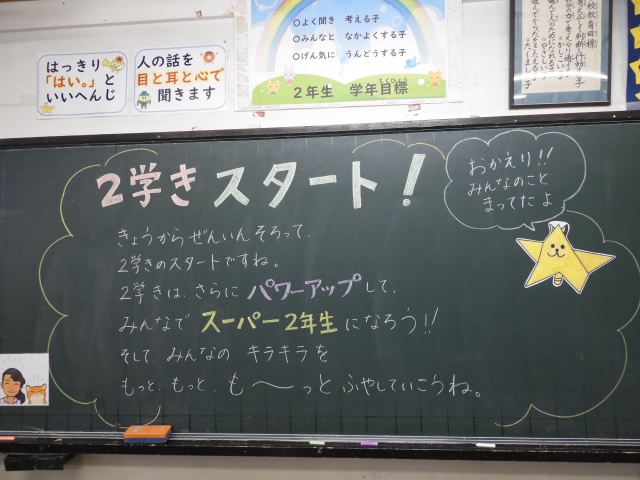 はっきり
「はい。」と
いいへんじ
人の話を
目と耳と心で
聞きます
○よく聞き 考える子
○みんなと なかよくする子
○げん気に うんどうする子
2年生 学年目標
2学き スタート!
おかえり!!
みんなのこと
まってたよ
きょうから ぜんいん そろって、
2学きのスタートですね。
2学きは、さらに パワーアップして、
みんなで スーパー2年生 になろう!!
そして、みんなの キラキラを
もっと、もっと、も〜っと ふやしていこうね。